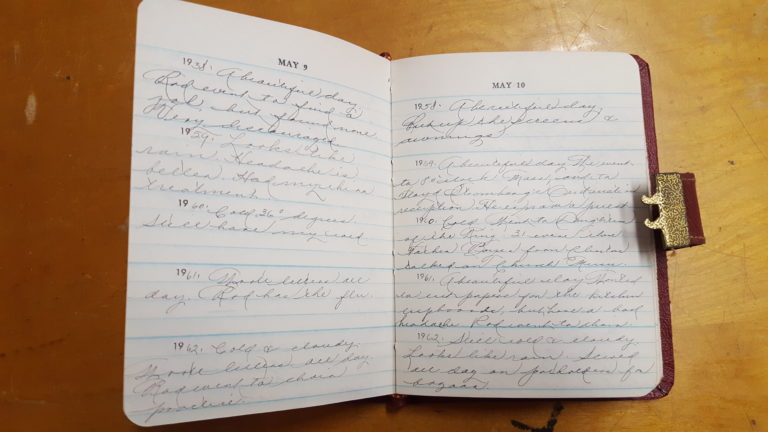 MAY 9
1958. A beautiful day.
Rod went to find a
job, but found none
Very discouraged.
1959. Looks like
rain. Headache is
better. Had my
treatment.
1960. Cold, 36° degrees.
Still have my cold
1961. Wrote letters all
day. Rod has the flu.
1962. Cold & cloudy.
Wrote letters all day.
Rod went to choir
practice.
MAY 10
1958. A beautiful day.
Putting the screens &
awnings
1959. A beautiful day. We went
to 8 o'clock Mass and to
reception. He is now a priest
1960. Cold. Went to
of the Ring.
Father from Clinton
talked on Church
1961. A beautiful day. Started
to cut papers for the kitchen
cupboards, but have a bad
headache. Rod went to choir
1962. Still cold & cloudy.
Looks like rain. Sewed
all day on potholders for
bazaar.